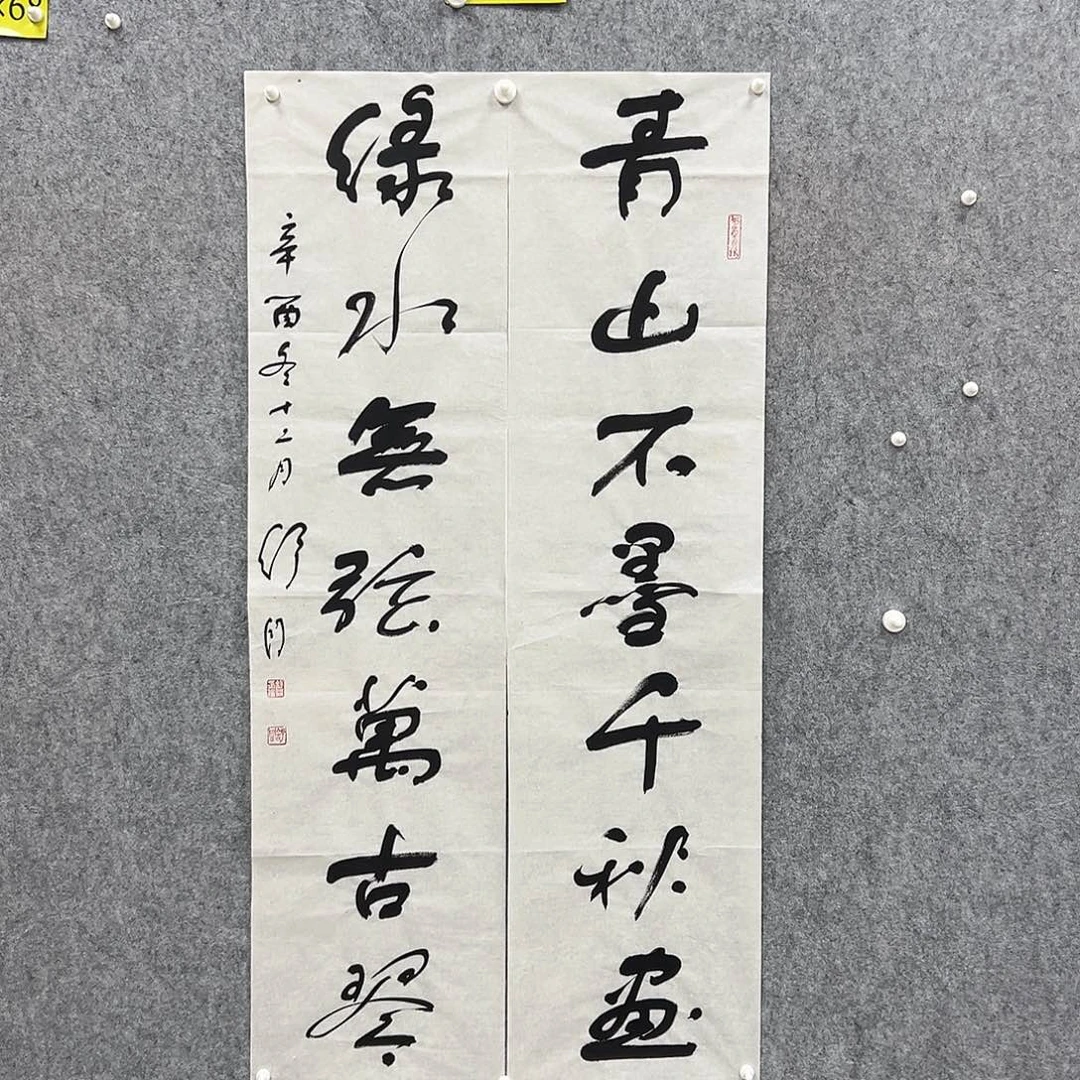 青山不墨千秋畫
綠水無弦萬古琴
辛酉冬十二月舒同
×60